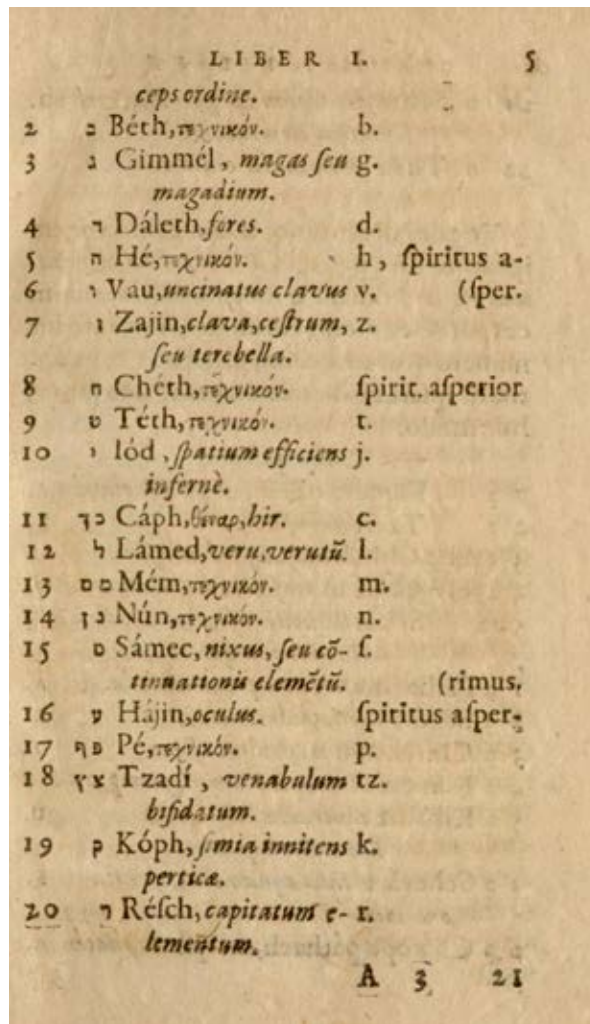 LIBER I. 5
ceps ordine.
2 ב Béth, τεχνικόν. b.
3 ג Gimmél, magas ſeu g.
magadium.
4 ד Dáleth, fores. d.
5 ה Hé, τεχνικόν. h, ſpiritus a-
6 ו Vau, uncinatus clavus v. (ſper.
7 ז Zajin, clava, ceſtrum, z.
ſeu terebella.
8 ח Chéth, τεχνικόν. ſpirit. aſperior
9 ט Téth, τεχνικόν. t.
10 י Iód, ſpatium efficiens j.
infernè.
11 ךכ Cáph, θέναρ, hir. c.
12 ל Lámed, veru, verutū. l.
13 םמ Mém, τεχνικόν. m.
14 ןנ Nún, τεχνικόν. n.
15 ס Sámec, nixus, ſeu cō- ſ.
tinuationis elemētū. (rimus.
16 ע Hájin, oculus. ſpiritus aſper-
17 ףפ Pé, τεχνικόν. p.
18 ץצ Tzadí, venabulum tz.
bifidatum.
19 ק Kóph, ſimia innitens k.
perticæ.
20 ר Réſch, capitatum e- r.
lementum.
A 3 21